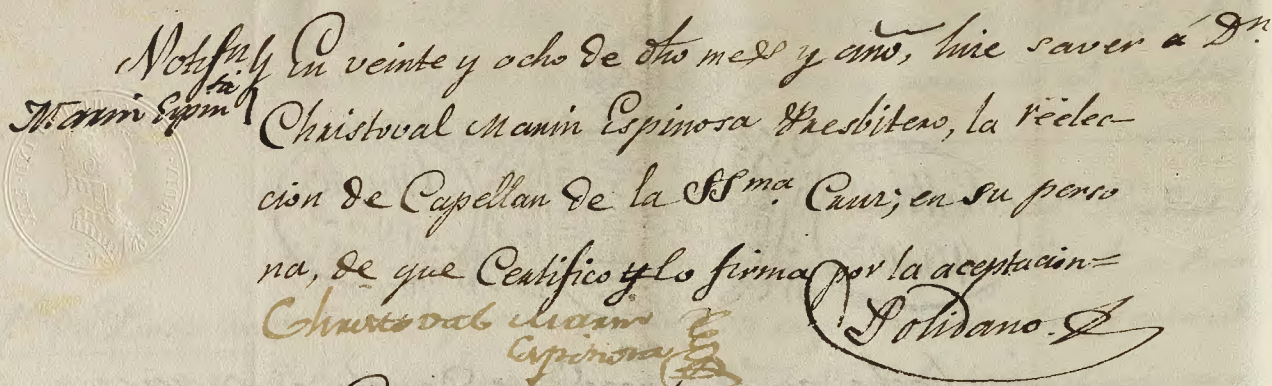 Notifn. y En veinte y ocho de dho mes y año, hice saver á Dn.
Marin Espinta.
Christoval Marin Espinosa Presbitero, la reelec-
cion de Capellan de la SSma. Cruz; en su perso
na, de que Certifico y lo firma por la aceptacion=
Christoval Marin
Espinosa
Polidano.